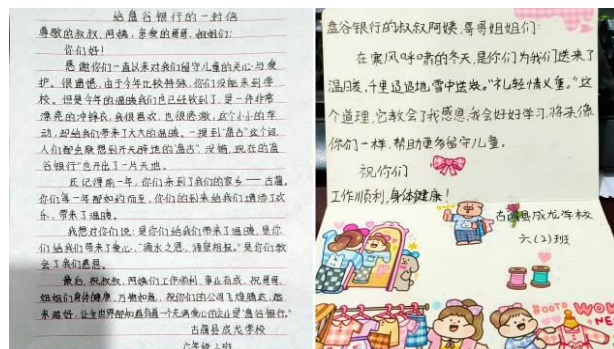 给盘谷银行的一封信
尊敬的叔叔、阿姨,亲爱的哥哥、姐姐们:
你们好!
感谢你们一直以来对我们留守儿童的关心与爱
护。很遗憾,由于今年比较特殊,你们没能来到学
校。但是今年的温暖我们也已经收到了,是一件非常
漂亮的冲锋衣,我很喜欢,也很感激,这个小小的举
动,却给我们带来了大大的温暖。一提到“盘古”这个词,
人们都会联想到开天辟地的“盘古”,没错,现在的盘
谷银行“也开出了一片天地。
还记得前一年,你们来到了我们的家乡——古蔺,
你们第一年都如约而至,你们的到来给我们增添了欢
乐,带来了温暖。
我想对你们说:是你们给我们带来了温暖,是你
们给我们带来了爱心,“滴水之恩,涌泉相报。”是你们教
会了我们感恩。
最后,祝叔叔、阿姨们工作顺利,事业有成,祝哥哥、
姐姐们身体健康,万事如意,祝你们的公司飞煌腾达,越
来越好,让全世界都知道有一个充满爱心的企业是“盘谷银行。”
古蔺县成龙学校
六年级二班
盘谷银行的叔叔阿姨、哥哥姐姐们:
在寒风呼啸的冬天,是你们为我们送来了
温暖,千里迢迢地雪中送炭。“礼轻情义重。”这
个道理,它教会了我感恩,我会好好学习,将来像
你们一样,帮助更多留守儿童。
祝你们
工作顺利,身体健康!
古蔺县成龙学校
六(2)班
#OOTD
WOW